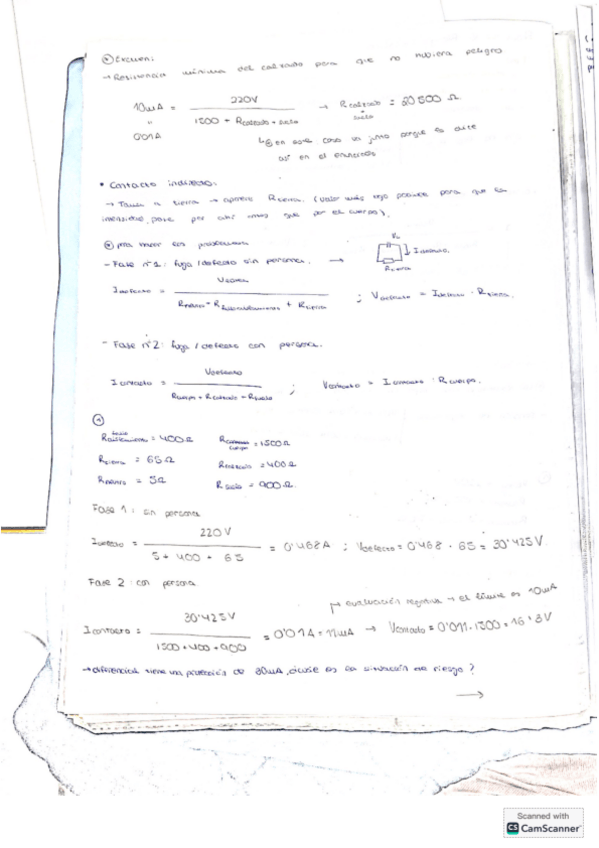 * Examen:
→ Resistencia mínima del calzado para que no hubiera peligro
10mA = 220V / 1500 + Rcalzado + suelo → Rcalzado + suelo = 20500 Ω
" 0'01A
↳ en este caso va junto porque es dice
así en el enunciado
• Contacto indirecto:
→ Toma a tierra → aparece Rtierra. (valor más bajo posible para que la
intensidad pase por antes que por el cuerpo).
* para hacer los problemas
- Fase nº1: fuga / defecto sin persona. →
I contacto.
Rtierra
I defecto = / Rneutro + + Rtierra ; Vdefecto = I defecto · Rtierra.
- Fase nº2: fuga / defecto con persona.
I contacto = Vdefecto / Rcuerpo + Rcalzado + Rsuelo ; Vcontacto = I contacto · Rcuerpo.
= 400Ω Rcuerpo = 1500Ω
Rtierra = 65Ω Rcalzado = 400Ω
Rneutro = 5Ω Rsuelo = 900Ω
Fase 1: sin persona
Idefecto = 220V / 5 + 400 + 65 = 0'468A ; Vdefecto = 0'468 · 65 = 30'425V
Fase 2: con persona.
→ evaluación negativa → el límite es 10mA
I contacto = 30'425V / 1500 + 400 + 900 = 0'01A = 11mA → Vcontacto = 0'011 · 1500 = 16'3V
→ diferencial tiene una protección de 30mA, ¿cuál es la situación de riesgo?
→
Scanned with
CS CamScanner